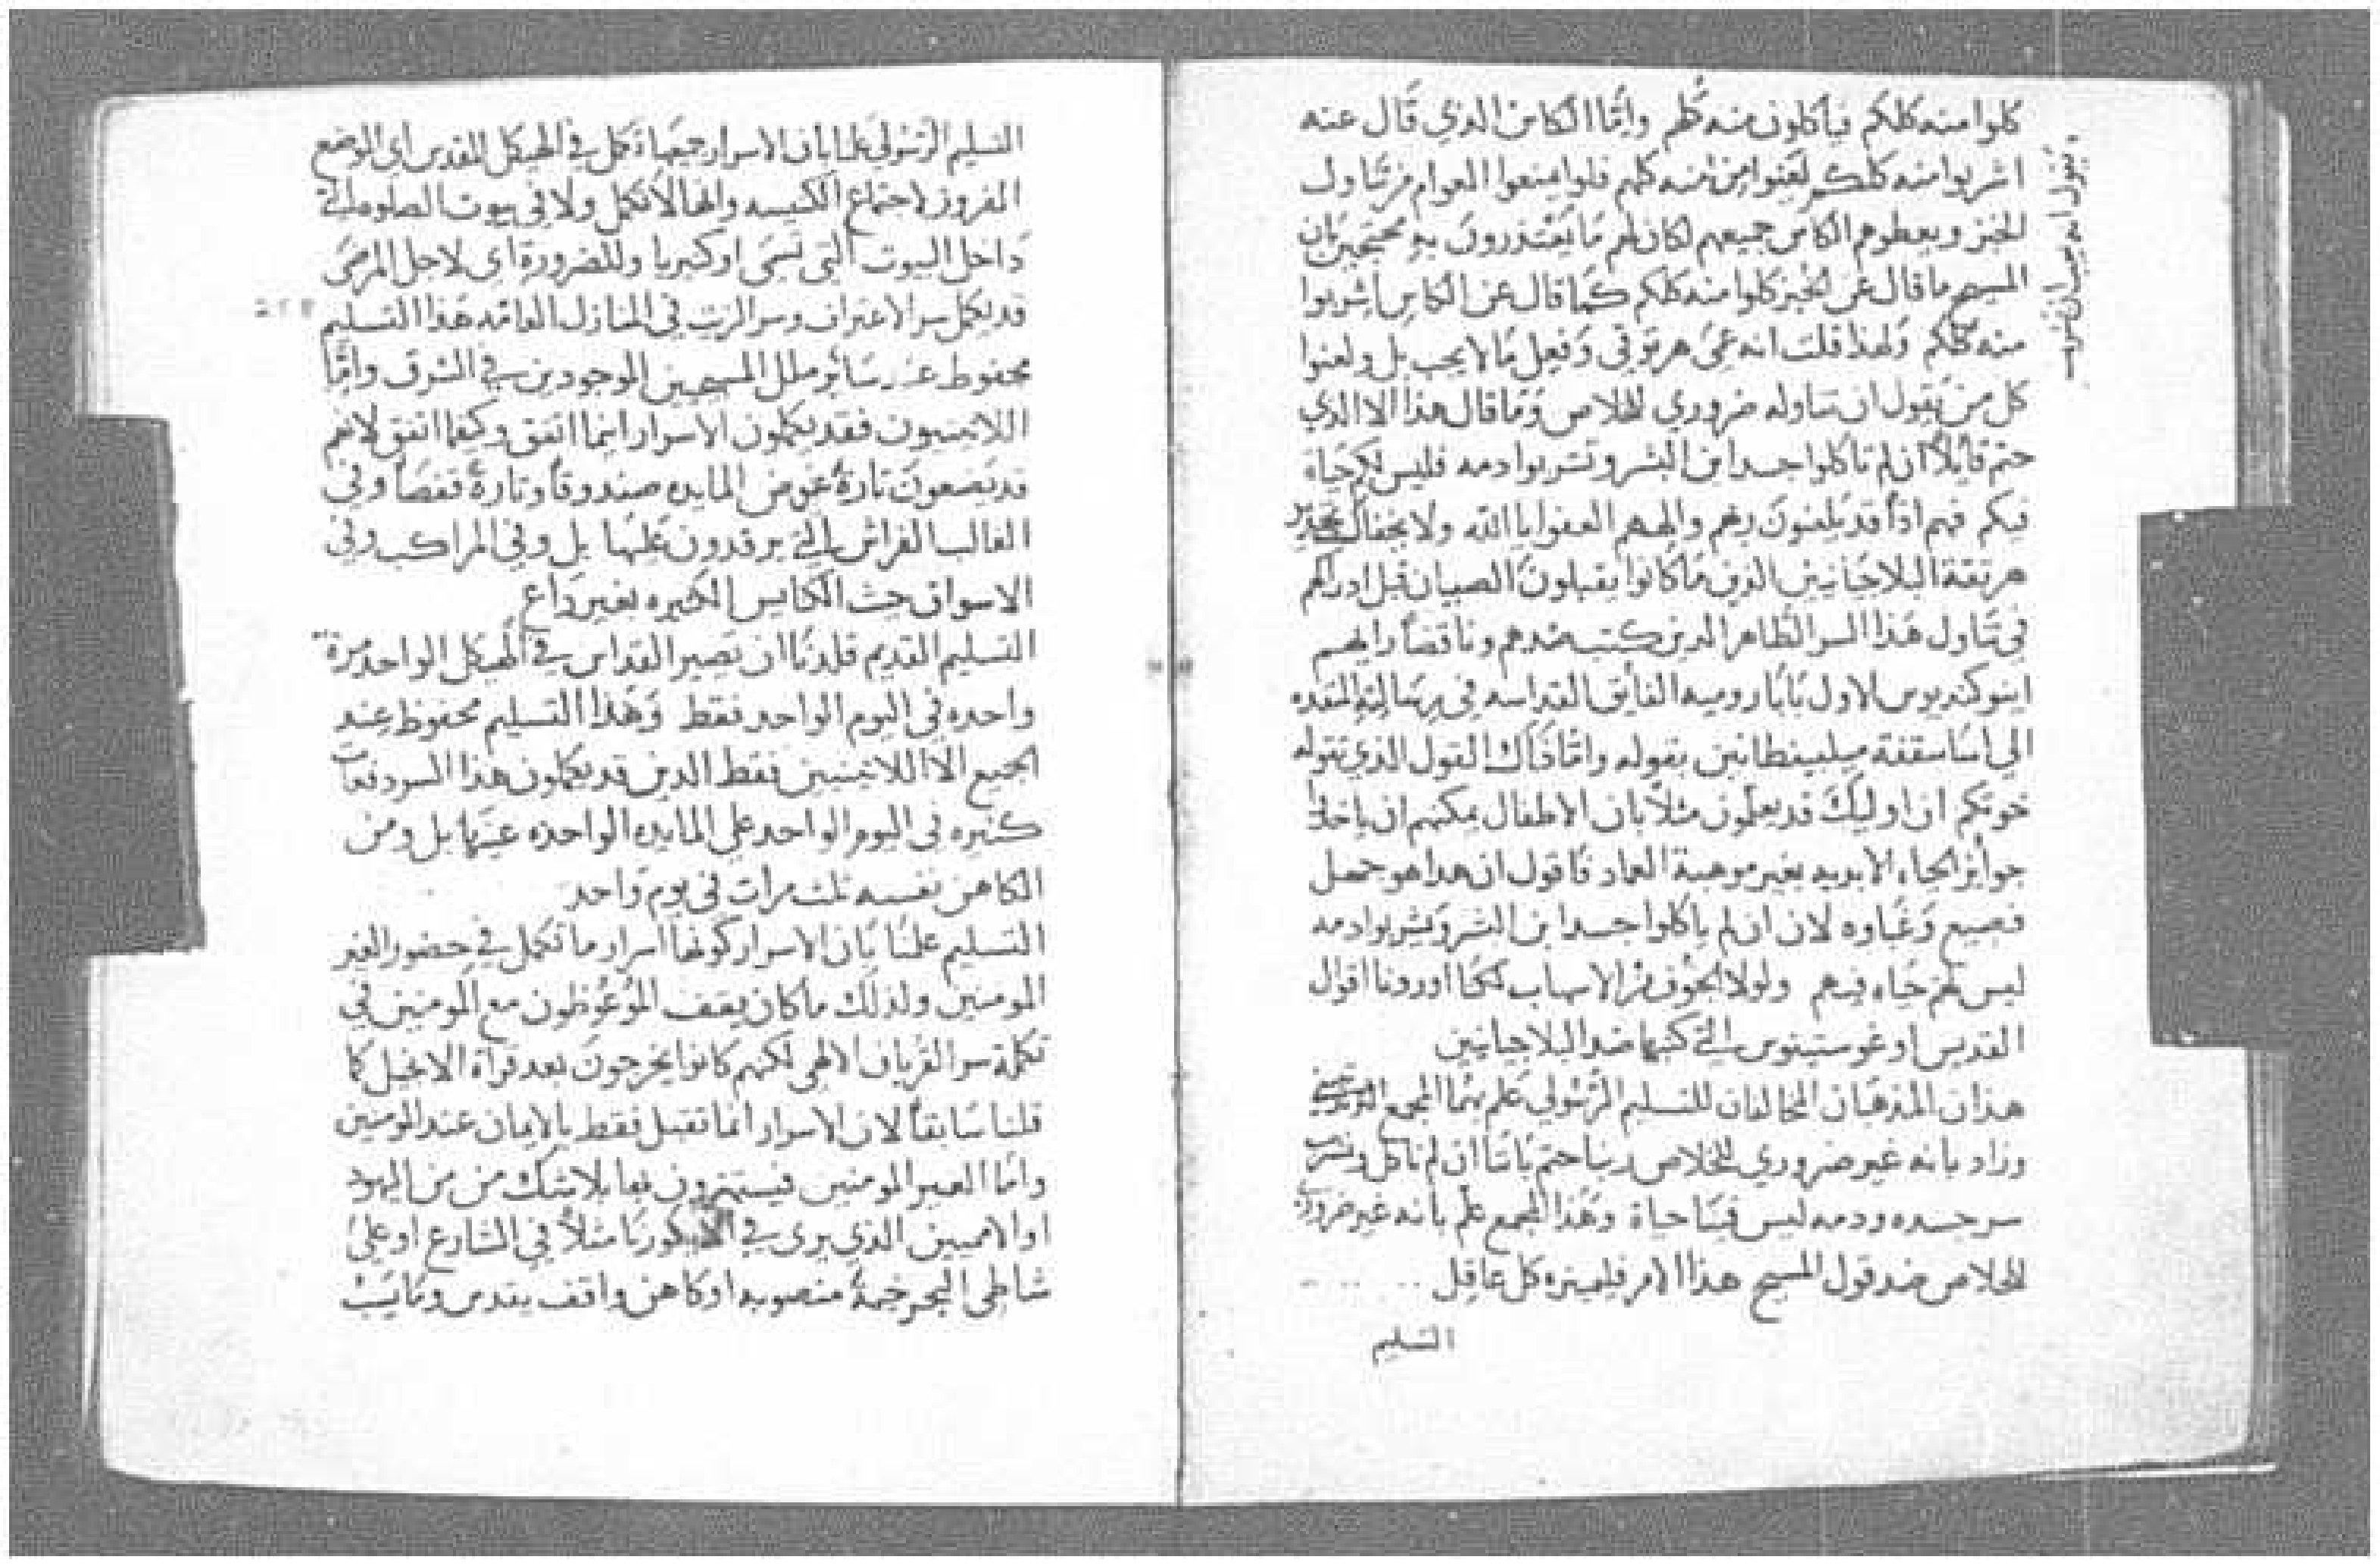 كلوا منه كلكم فياكلون منه كلهم وامّا الكاس الذي قال عنه
اشربوا منه كلكم لعنوا من منه كلهم فلو امنعوا العوام من تناول
الخبز ويعطوهم الكاس جميعهم لكان لهم ما يعتذرون به محتجين بان
المسيح ما قال عن الخبز كلوا منه كلكم كما قال عن الكاس اشربوا
منه كلكم ولهذا قلت انه عمي هرتوقي وفعل ما لا يجب بل ولعنوا
كل من يقول ان تناوله ضروري للخلاص وما قال هذا الا الذي
حتم قايلاً ان لم تاكلوا جسد ابن البشر وتشربوا دمه فليس لكم حياة
فيكم فهم اذاً قد يلعنون ربهم والههم العفو يا الله ولا يخفاك
هرتقة البلاجيانيين الذين ما كانوا يقبلون الصبيان قبل ادراكهم
في تناول هذا السر الطاهر الدين كتب ضدهم وناقضاً رايهم
اينوكنديوس الاول بابا روميه الفايق القداسه في رسالته المنفده
الي اساسقفة ميليفيطانين بقوله وامّا ذاك القول الذي تقوله
خوتكم ان اوليك قد يعلمون مثلاً بان الاطفال يمكنهم ان ياخذوا
جوايز الحياه الابديه بغير موهبة العماد فاقول ان هذا هو جهل
فضيع وغباوه لان ان لم ياكلوا جسد ابن البشر ويشربوا دمه
ليس لهم حياه فيهم ولولا الخوف من الاسهاب لكنا اوردنا اقوال
القديس اوغوستينوس التي كتبها ضد البلاجيانيين
هذان المذهبان المخالفان للتسليم الرسولي علم بهما المجمع
وزاد بانه غير ضروري للخلاص ربنا حتم باتاً ان لم ناكل ونشرب
سر جسده ودمه ليس فينا حياة وهذا المجمع علم بانه غير ضروري
للخلاص ضد قول المسيح هذا الامر فليميزه كل عاقل
التسليم
التسليم الرسولي علمنا بان الاسرار جميعها تكمل في الهيكل المقدس اي الموضع
المفروز لاجتماع الكنيسه وانها لا تكمل ولا في بيوت الصلوه التي
داخل البيوت التي تسمى اوكتيريا وللضرورة اي لاجل المرضى
قد يكمل سر الاعتراف وسر الزيت في المنازل العامّه هذا التسليم
محفوظ عند سائر ملل المسيحيين الموجودين في الشرق وامّا
اللاتينيون فقد يكملون الاسرار اينما اتفق وكيفما اتفق لانهم
قد يضعون تارةً عوض المايده صندوقاً وتارةً قفصاً وفي
الغالب الفراش التي يرقدون عليها بل وفي المراكب وفي
الاسواق حيث الكنايس الكثيره بغير داعٍ
التسليم القديم قلدنا ان يصير القداس في الهيكل الواحد مرة
واحده في اليوم الواحد فقط وهذا التسليم محفوظ عند
الجميع الا اللاتينيين فقط الدين قد يكملون هذا السر دفعات
كثيره في اليوم الواحد على المايده الواحده عينها بل ومن
الكاهن نفسه ثلث مرات في يوم واحد
التسليم علمنا بان الاسرار كونها اسرار ما تكمل في حضور الغير
المومنين ولذلك ما كان يقف الموعوظون مع المومنين في
تكملة سر القربان الالهي لكنهم كانوا يخرجون بعد قراة الانجيل كما
قلنا سابقاً لان الاسرار انما تقبل فقط بالايمان عند المومنين
وامّا الغير المومنين فيستهزون بها بلا شك من من اليهود
او الامميين الذي يرى في مثلاً في الشارع او على
شاطي البحر خيمة منصوبه او كاهن واقف يقدس وما